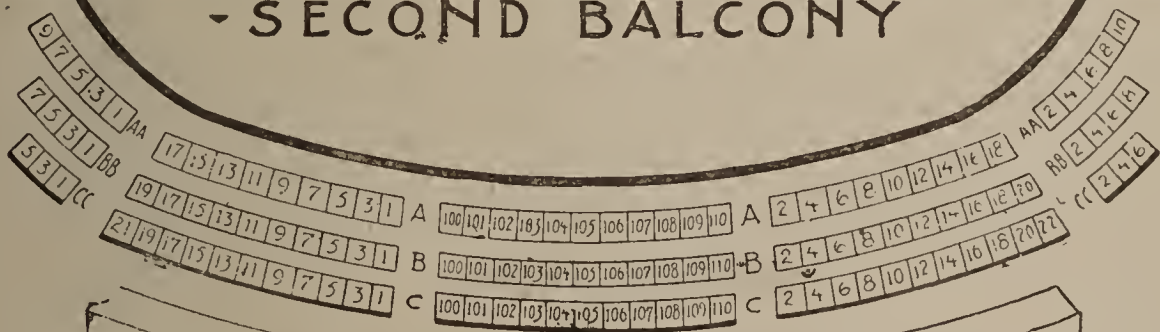 SECOND BALCONY
9 7 5 3 1 AA
7 5 3 1 BB
5 3 1 CC
17 15 13 11 9 7 5 3 1 A 100 101 102 103 104 105 106 107 108 109 110 A 2 4 6 8 10 12 14 16 18
19 17 15 13 11 9 7 5 3 1 B 100 101 102 103 104 105 106 107 108 109 110 B 2 4 6 8 10 12 14 16 18 20
21 19 17 15 13 11 9 7 5 3 1 C 100 101 102 103 104 105 106 107 108 109 110 C 2 4 6 8 10 12 14 16 18 20 22
AA 2 4 6 8 10
BB 2 4 6 8
CC 2 4 6